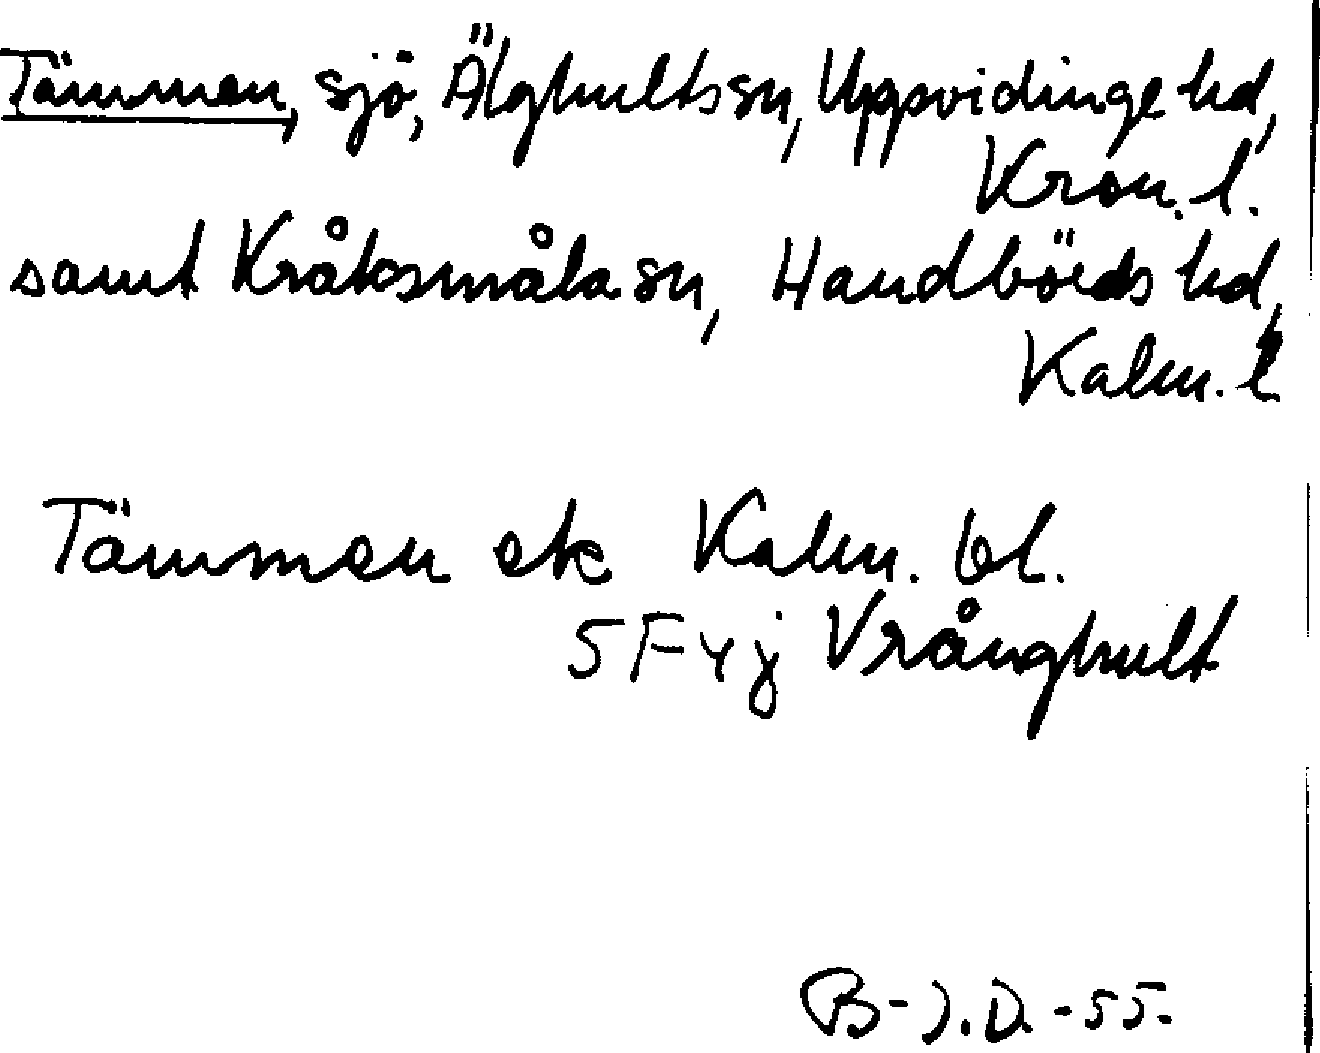 Tämmen, sjö, Älghults sn, Uppvidinge hd,
Kron. l.
samt Kråksmåla sn, Handbörds hd,
Kalm. l
Tämmen ek Kalm. bl.
5F4j Vrånghult
B-J.D.-55.